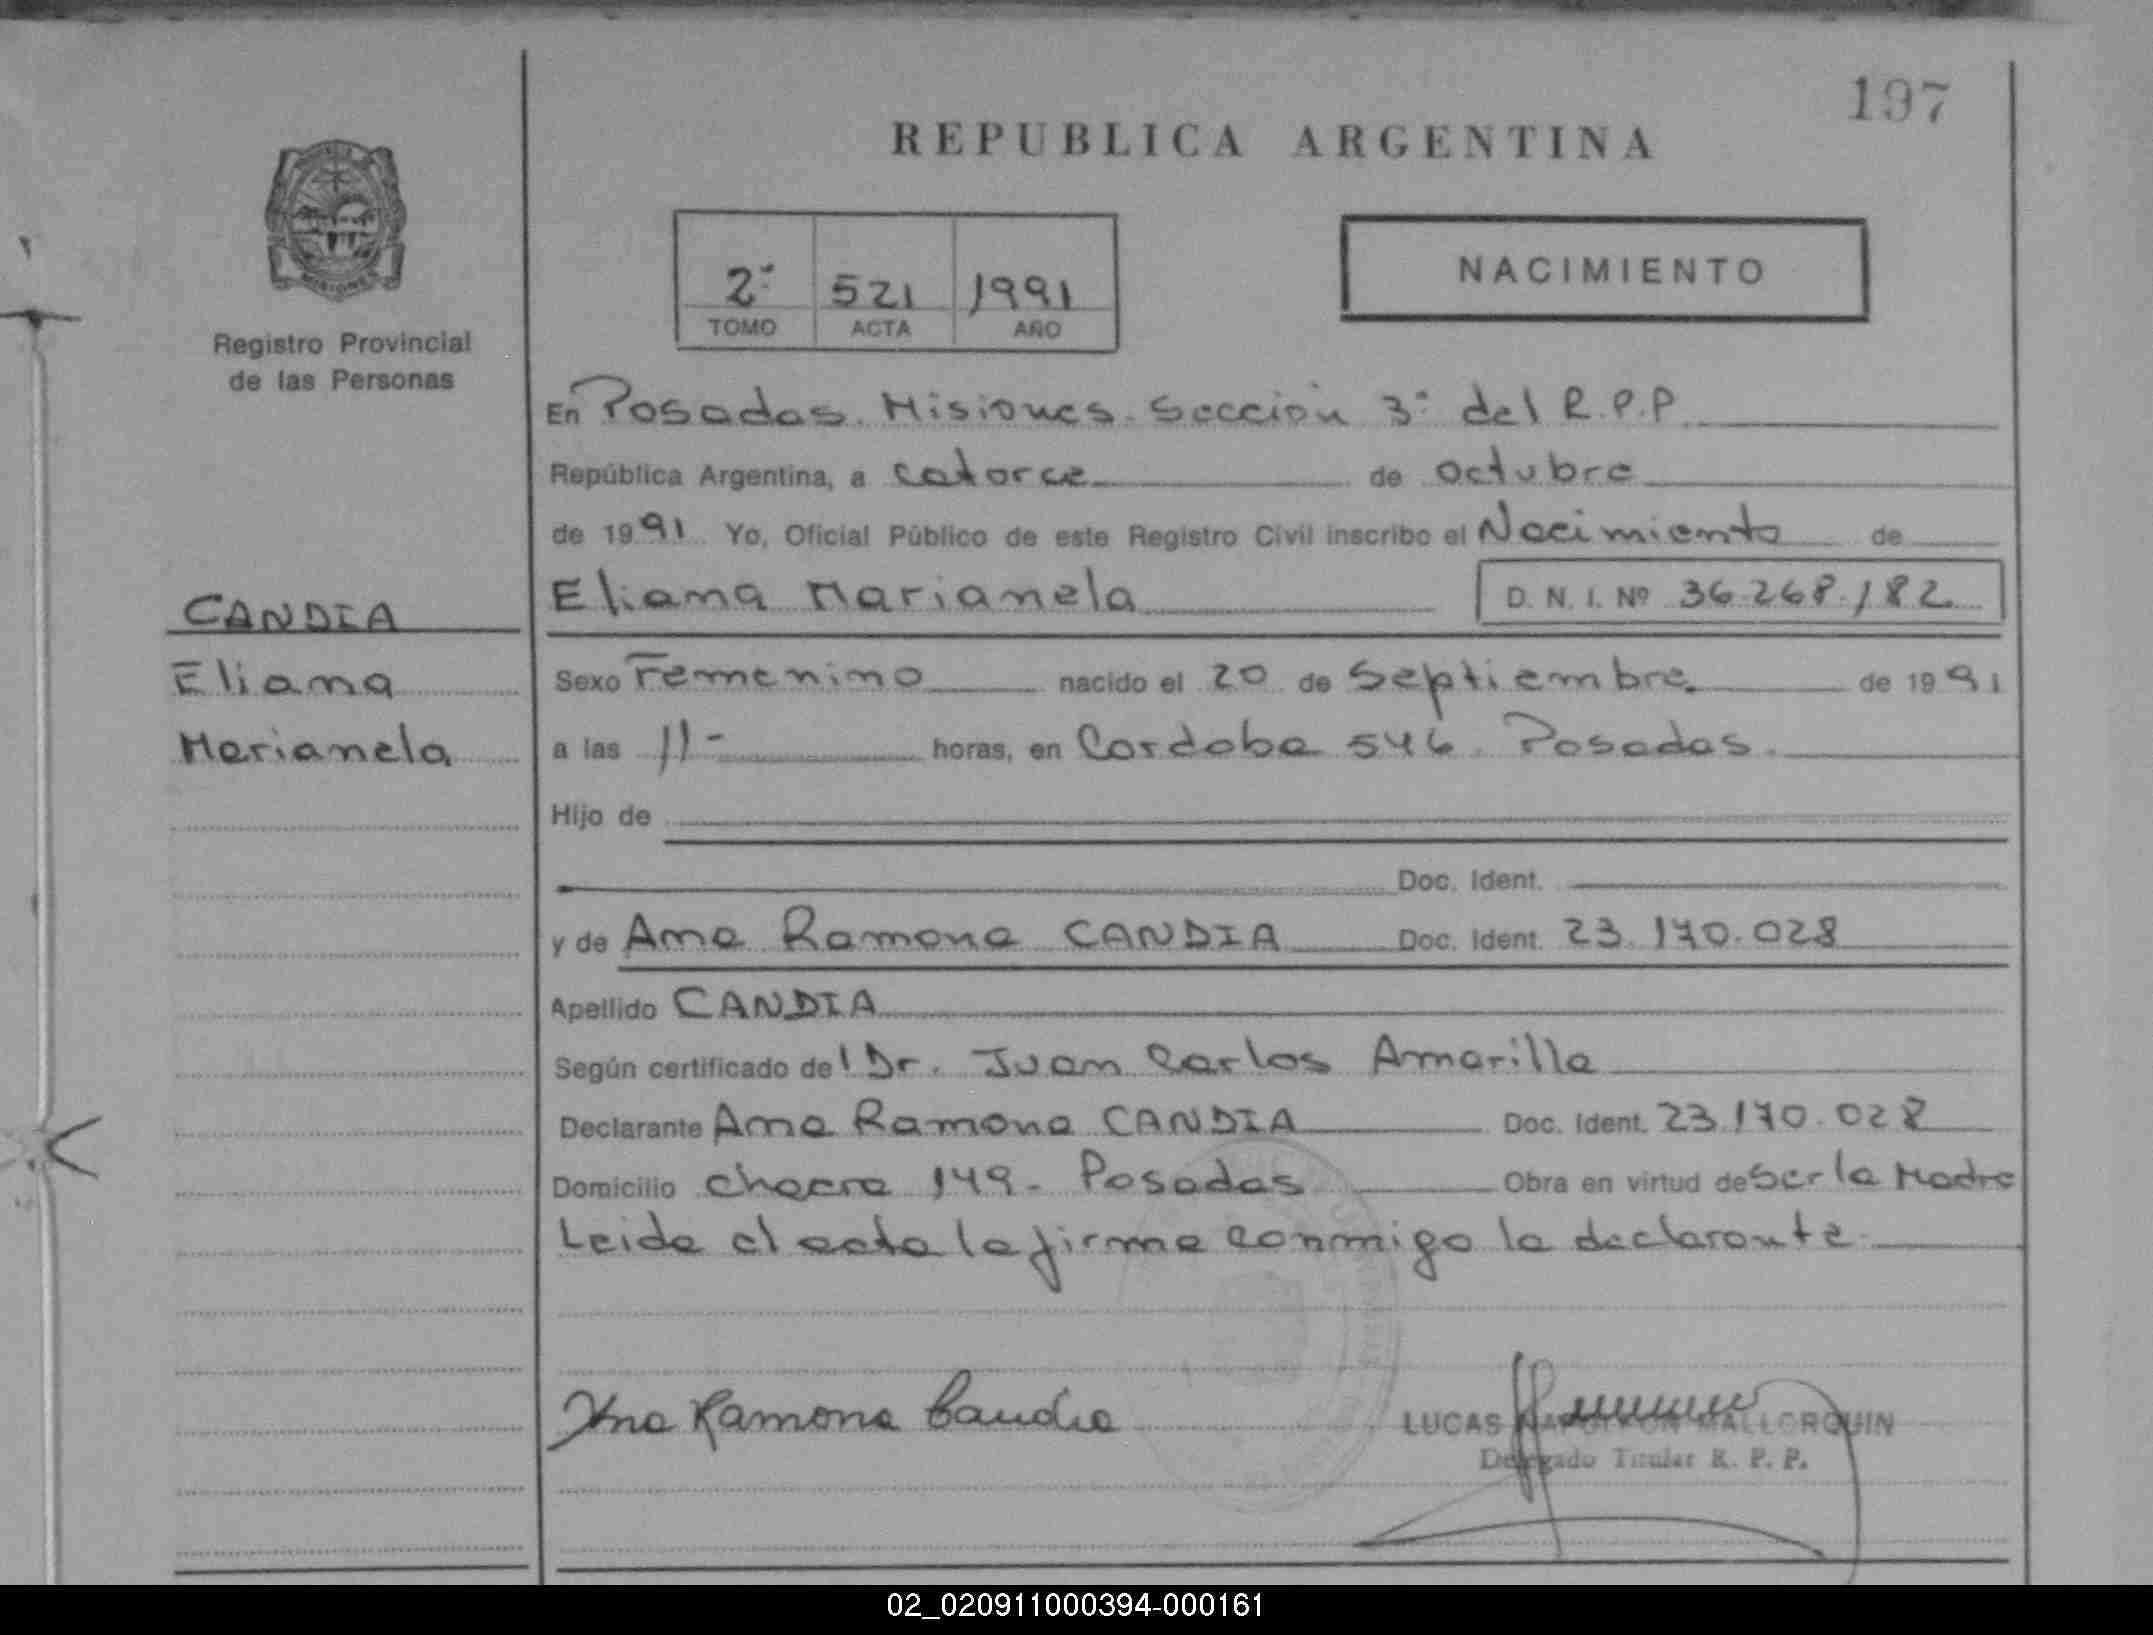 197
REPUBLICA ARGENTINA
2ª 521 1991
TOMO ACTA AÑO
NACIMIENTO
Registro Provincial
de las Personas
En Posadas. Misiones. Sección 3ª del R.P.P
República Argentina, a catorce de octubre
de 1991 Yo, Oficial Público de este Registro Civil inscribo el Nacimiento de
CANDIA
Eliana Marianela D. N. I. Nº 36.268.182
Eliana
Sexo Femenino nacido el 20 de Septiembre de 1991
Marianela
a las 11- horas, en Cordoba 546. Posadas.
Hijo de
Doc. Ident.
y de Ana Ramona CANDIA Doc. Ident. 23.170.028
Apellido CANDIA
Según certificado del Dr. Juan Carlos Amarilla
Declarante Ana Ramona CANDIA Doc. Ident. 23.170.028
Domicilio chacra 149- Posadas Obra en virtud de ser la Madre
Leida el acta la firma conmigo la declarante.
Ana Ramona Candia
LUCAS NAPOLEON MALLORQUIN
Delegado Titular R. P. P.
02_020911000394-000161